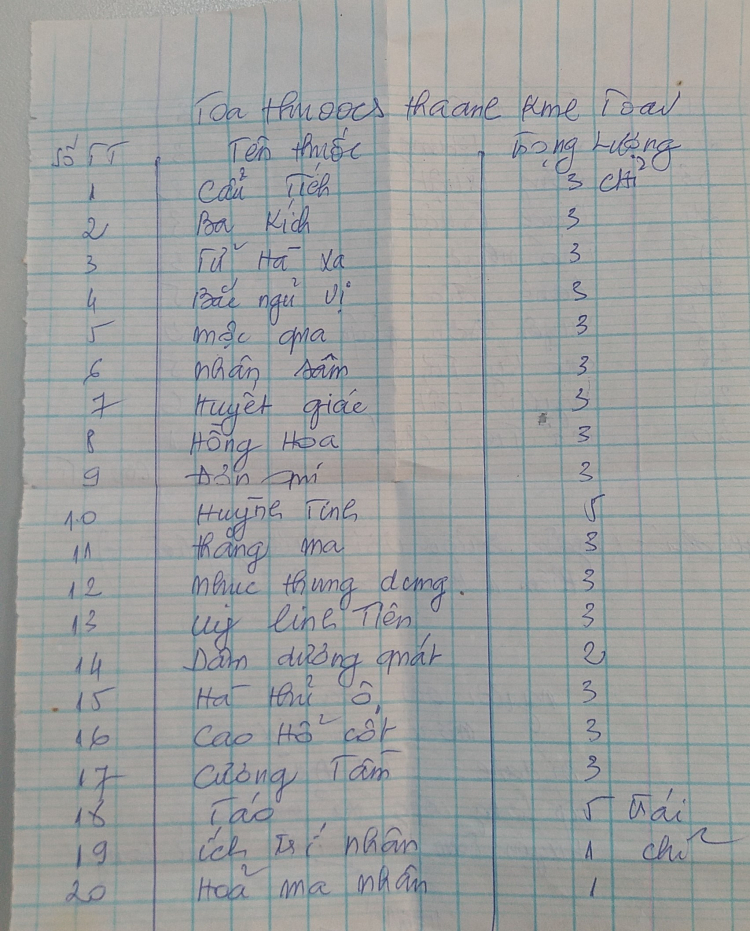 Toa thuoocs thaane kme Toai
Số TT Tên thuốc Trọng Lượng
1 Cẩu Tích 3 chỉ
2 Ba Kích 3
3 Tử Hà Xa 3
4 Bắc ngủ vị 3
5 mộc qua 3
6 nhân sâm 3
7 Huyết giác 3
8 Hồng Hoa 3
9 3
10 Huỳnh Tinh 5
11 thăng ma 3
12 nhuc thung dung 3
13 uy linh Tiên 3
14 Dâm dương quát 2
15 Hà thủ ô 3
16 Cao Hổ cốt 3
17 Cương Tầm 3
18 Táo 5 trái
19 ích trí nhân 1 chỉ
20 Hoả ma nhân 1